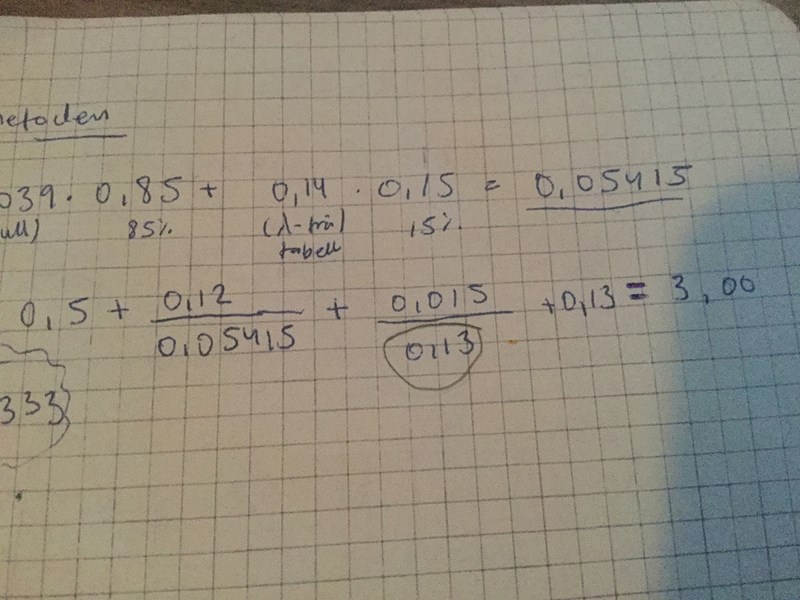 netoden
039. 0,85 + 0,14 . 0,15 = 0,05415
ull) 85% (λ-trä) 15%
tabell
0,5 + 0,12/0,05415 + 0,015/0,13 +0,13 = 3,00
333